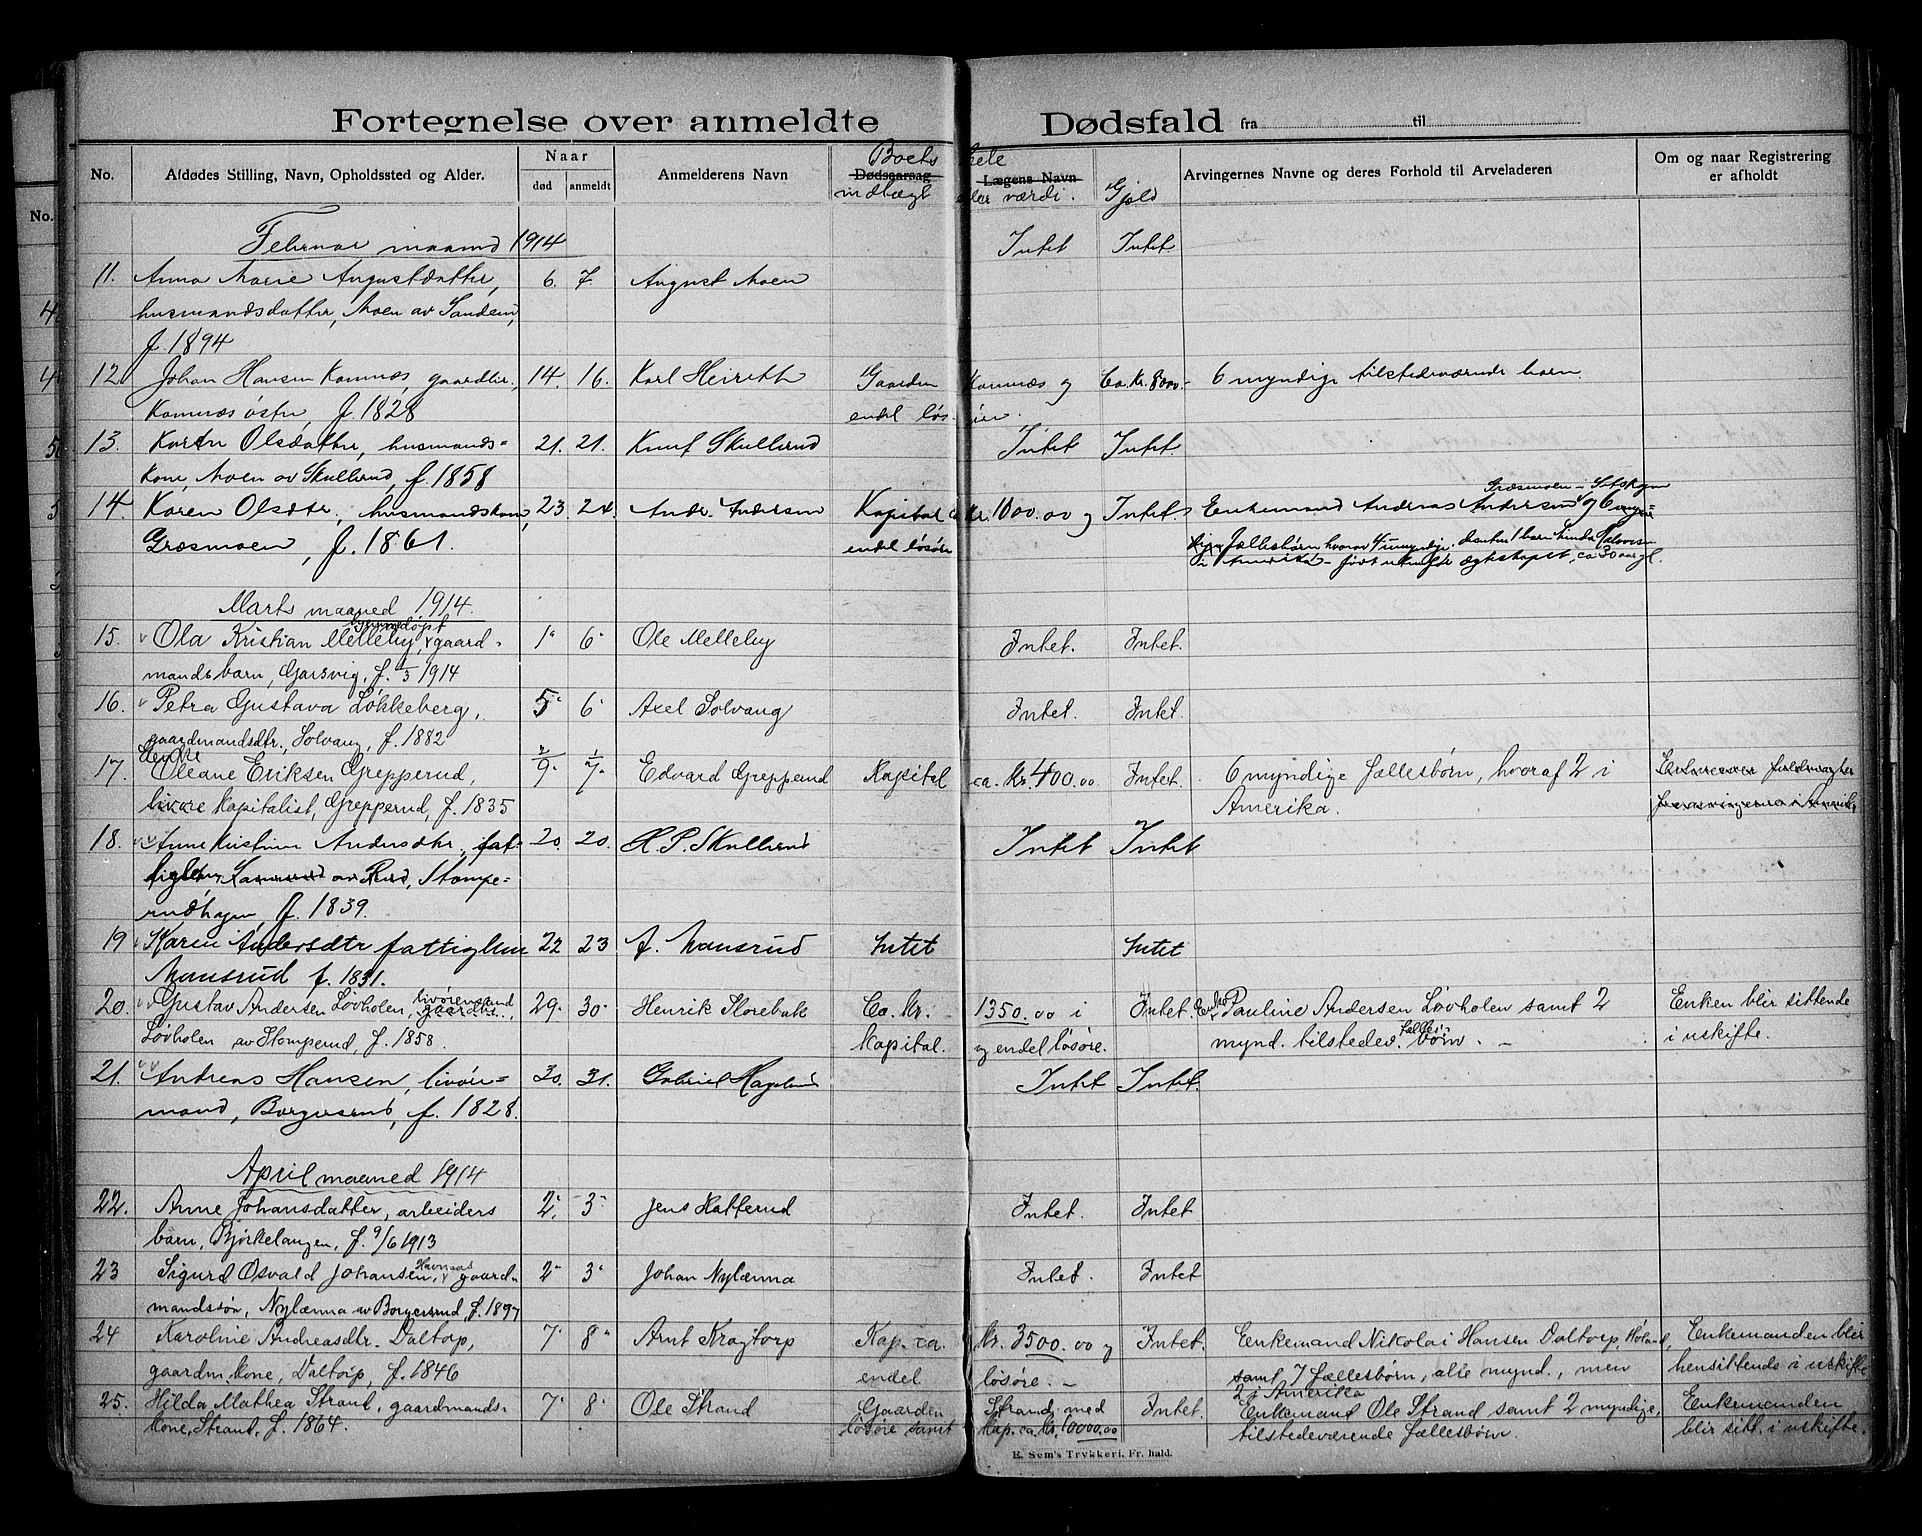 Fortegnelse over anmeldte Dødsfald fra til
No. Afdødes Stilling, Navn, Opholdssted og Alder. Naar død anmeldt Anmelderens Navn Dødsaarsag Lægens Navn Arvingernes Navne og deres Forhold til Arveladeren Om og naar Registrering er afholdt
Boets hele
indtægt eller værdi. Gjæld
No.
Februar maaned 1914
11. Anna Marie Augustdatter, 6. 7. August Moen Intet Intet
husmandsdatter, Moen av Sandem,
f. 1894
12 Johan Hansen Kamnæs, gaardbr. 14. 16. Karl Heireth Gaarden Kamnæs og Ca. Kr. 8000- 6 myndige tilstedeværende barn.
Kamnæs østre, f. 1828 endel løsøre.
13. Karen Olsdatter, husmands= 21. 21. Knut Skullerud Intet Intet
kone, Moen av Skullerud, f. 1858
14. Karen Olsdtr., husmandskone, 23. 24. Andr. Andersen Kapital Ca Kr. 1000.00 og Intet. Enkemand Andreas Andersen Græsmoen - Setskogen og 6 myn=
Græsmoen, f. 1861. endel løsøre dige fællesbørn hvorav 4 umyndige. desuten 1 barn
i Amerika - født utenfor ægteskapet, ca 30 aar gl.
Marts maaned 1914.
15. Ola Kristian Melleby, hjemmedøpt gaard- 1. 6. Ole Melleby Intet. Intet.
mandsbarn, Gjarsvig, f. 1/3 1914
16. Petra Gustava Løkkeberg, 5. 6. Axel Solvang Intet. Intet.
gaardmandsdtr., Solvang, f. 1882
17. Oleane Eriksen Grepperud, 9. 7. Edvard Grepperud Kapital ca. Kr. 400.00 Intet. 6 myndige fællesbørn, hvoraf 2 i
livøre Kapitalist, Grepperud, f. 1835 Amerika.
18. Anne Kristine Andersdtr., fat- 20. 20. H. P. Skullerud Intet Intet
tiglem, av Rud, Stompe=
rudhagen, f. 1839.
19 Karen Andersdtr fattiglem 22 23 A. Mansrud Intet Intet
Mansrud f. 1831.
20. Gustav Andersen Løvholen, livøremand gaardbr., 29. 30. Henrik Storebak Ca. kr. 1350.00 i Intet. Enke Pauline Andersen Løvholen samt 2 Enken blir sittende
Løvholen av Stomperud, f. 1858. Kapital. og endel løsøre. mynd. tilstedev. fælles- børn. - i uskifte.
21. Andreas Hansen, livøre= 30. 31. Gabriel Intet Intet.
mand, Borgersrud, f. 1828.
April maaned 1914
22. Anne Johansdatter, arbeiders 2. 3. Jens Hatterud Intet. Intet
barn, Bjørkelangen, f. 9/6 1913
23 Sigurd Osvald Johansen, Havnaas gaard- 2. 3. Johan Nylænna Intet. Intet
mandssøn, Nylænna av Borgersrud f. 1897
24 Karoline Andreasdtr. Daltorp, 7. 8. Arnt Kragtorp Kap. ca. kr. 3500.00 og Intet. Enkemand Nikolai Hansen Daltorp, Høland, Enkemanden blir
gaardm. kone, Daltorp, f. 1846 endel løsøre. - samt 7 fællesbørn, alle mynd., men hensittende i uskifte
2 i Amerika
25. Hilda Mathea Strand, gaardmands- 7. 8. Ole Strand Gaarden Strand, med Intet. Enkemand Ole Strand samt 2 myndige, Enkemanden
kone, Strand, f. 1864. løsøre samt kap. ca. kr. 10000.00 tilstedeværende fællesbørn. blir sitt. i uskifte.
E. Sem's Trykkeri, Fr. hald.